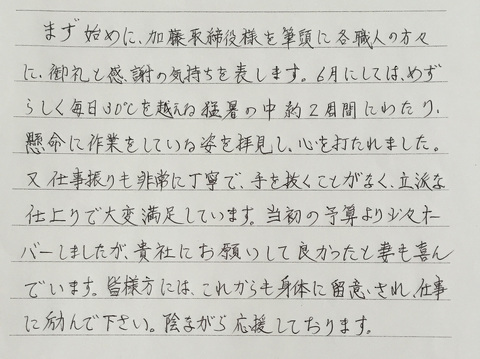 まず始めに、加藤取締役様を筆頭に各職人の方々
に、御礼と感謝の気持ちを表します。6月にしては、めず
らしく毎日30℃を越える猛暑の中約2週間にわたり、
懸命に作業をしている姿を拝見し、心を打たれました。
又仕事振りも非常に丁寧で、手を抜くことがなく、立派な
仕上りで大変満足しています。当初の予算より少々オー
バーしましたが、貴社にお願いして良かったと妻も喜ん
でいます。皆様方には、これからも身体に留意され、仕事
に励んで下さい。陰ながら応援しております。